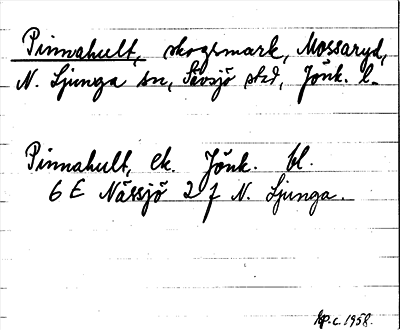 Pinnahult, skogsmark, Mossaryd,
N. Ljunga sn, Sävsjö std, Jönk. l.
Pinnahult, ek. Jönk. bl.
6 E Nässjö 2 f N. Ljunga.
1958.